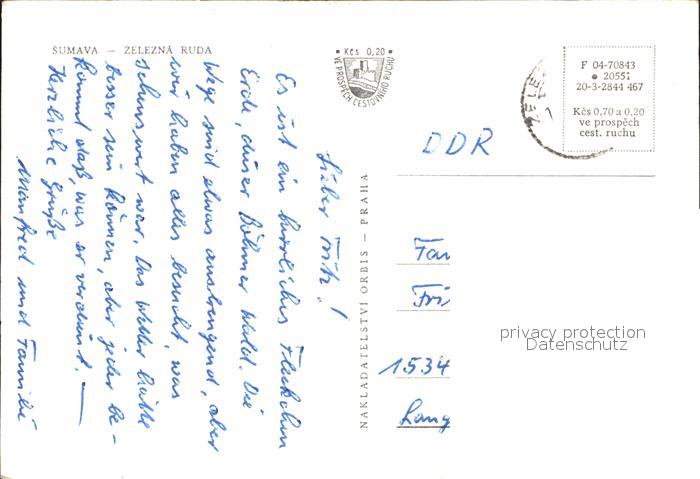 ŠUMAVA — ŽELEZNÁ RUDA
Kčs 0,20
VE PROSPĚCH CESTOVNÍHO RUCHU
F 04-70843
20551
20-3-2844 467
Kčs 0,70 a 0,20
ve prospěch
cest. ruchu
ŽELE
DDR
Lieber Fritz!
Es ist ein herrliches Fleckchen
Erde, dieser Böhmer Wald. Die
Wege sind etwas anstrengend, aber
wir haben alles besucht, was
sehenswert war. Das Wetter hätte
besser sein können, aber jeder be-
kommt das, was er verdient. —
Herzliche Grüße
Manfred und Familie
NAKLADATELSTVÍ ORBIS — PRAHA
Fam
Fri
1534
Lang
privacy protection
Datenschutz